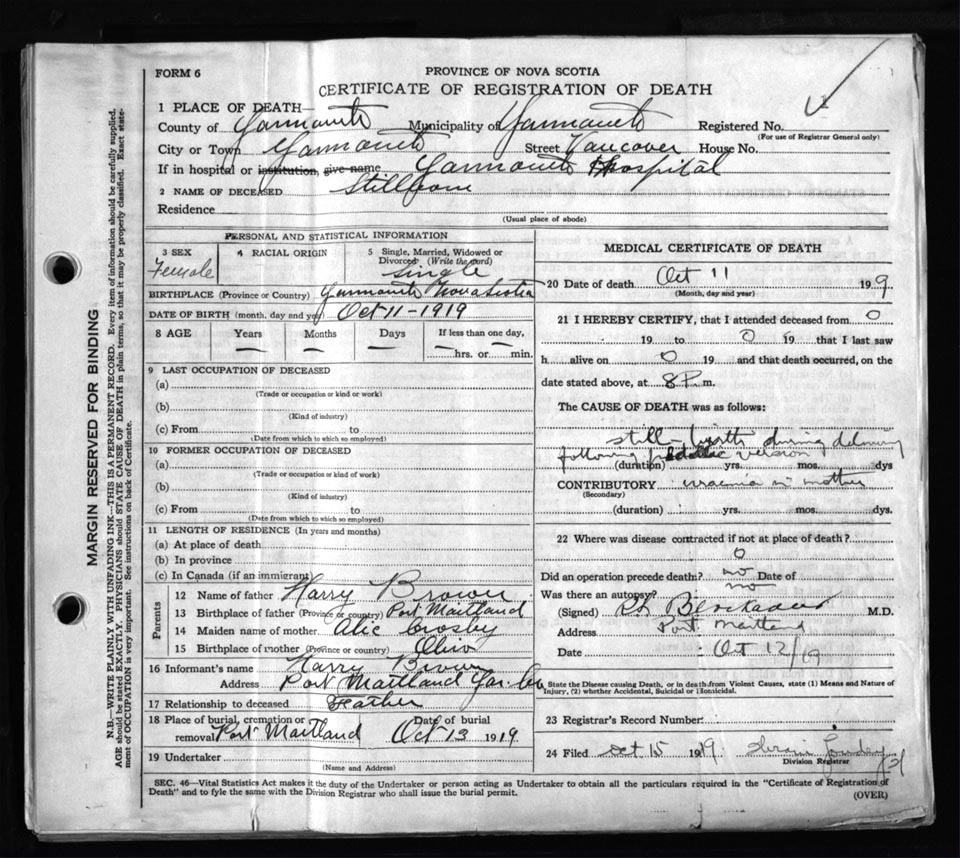 FORM 6
PROVINCE OF NOVA SCOTIA
CERTIFICATE OF REGISTRATION OF DEATH
1 PLACE OF DEATH—
County of Yarmouth Municipality of Yarmouth Registered No.
(For use of Registrar General only)
City or Town Yarmouth Street Vancover House No.
If in hospital or institution, give name Yarmouth Hospital
2 NAME OF DECEASED Stillborn
Residence
(Usual place of abode)
PERSONAL AND STATISTICAL INFORMATION
3 SEX Female
4 RACIAL ORIGIN
5 Single, Married, Widowed or Divorced (Write the word) Single
BIRTHPLACE (Province or Country) Yarmouth Nova Scotia
DATE OF BIRTH (month, day and year) Oct 11-1919
8 AGE Years Months Days If less than one day,
— — — — hrs. or — min.
9 LAST OCCUPATION OF DECEASED
(a)
(Trade or occupation or kind or work)
(b)
(Kind of industry)
(c) From to
(Date from which to which so employed)
10 FORMER OCCUPATION OF DECEASED
(a)
(Trade or occupation or kind of work)
(b)
(Kind of industry)
(c) From to
(Date from which to which so employed)
11 LENGTH OF RESIDENCE (In years and months)
(a) At place of death
(b) In province
(c) In Canada (if an immigrant)
Parents
12 Name of father Harry Brown
13 Birthplace of father (Province or country) Port Maitland
14 Maiden name of mother Alic Crosby
15 Birthplace of mother (Province or country) Ohio
16 Informant's name Harry Brown
Address Port Maitland Yar. Co
17 Relationship to deceased Feather
18 Place of burial, cremation or removal Port Maitland Date of burial Oct 13 1919
19 Undertaker
(Name and Address)
MEDICAL CERTIFICATE OF DEATH
20 Date of death Oct 11 199
(Month, day and year)
21 I HEREBY CERTIFY, that I attended deceased from 0
19 to 0 19 that I last saw
h alive on 0 19 and that death occurred, on the
date stated above, at 8 P. m.
The CAUSE OF DEATH was as follows:
still-birth during delivery
following podalic version
(duration) yrs. mos. dys
CONTRIBUTORY uraemia in mother
(Secondary)
(duration) yrs. mos. dys.
22 Where was disease contracted if not at place of death?
0
Did an operation precede death? no Date of
Was there an autopsy? no
(Signed) M.D.
Address Port Maitland
Date Oct 12/19
State the Disease causing Death, or in death from Violent Causes, state (1) Means and Nature of
Injury, (2) whether Accidental, Suicidal or Homicidal.
23 Registrar's Record Number
24 Filed Oct 15 1919
Division Registrar
SEC. 46—Vital Statistics Act makes it the duty of the Undertaker or person acting as Undertaker to obtain all the particulars required in the "Certificate of Registration of
Death" and to fyle the same with the Division Registrar who shall issue the burial permit.
(OVER)
MARGIN RESERVED FOR BINDING
N.B—WRITE PLAINLY WITH UNFADING INK—THIS IS A PERMANENT RECORD. Every item of information should be carefully supplied.
AGE should be stated EXACTLY. PHYSICIANS should STATE CAUSE OF DEATH in plain terms, so that it may be properly classified. Exact state-
ment of OCCUPATION is very important. See instructions on back of Certificate.